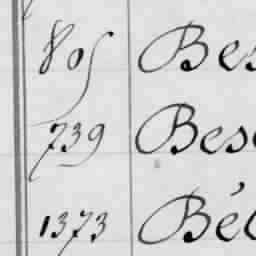 805 Bes
739 Bes
1373 Bé